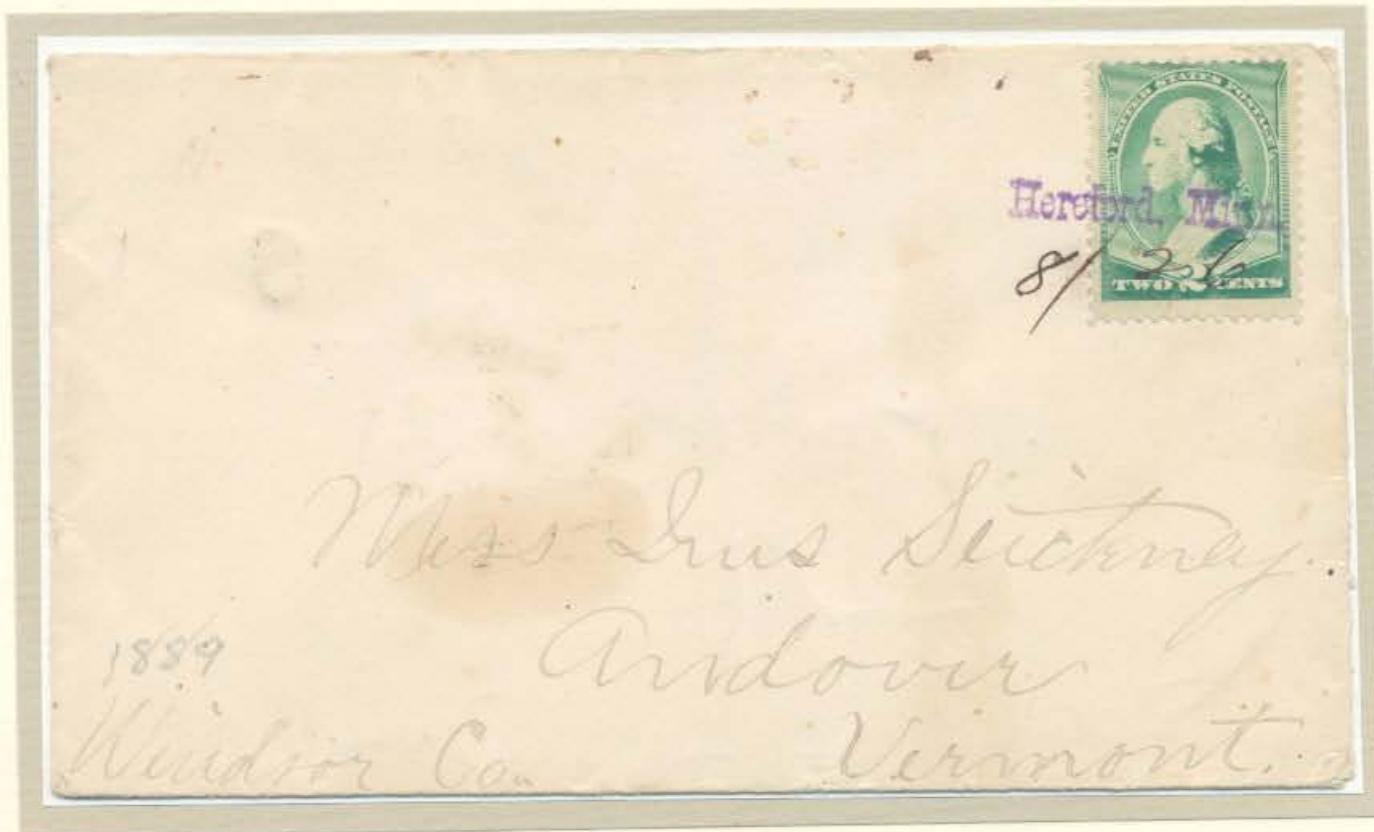 UNITED STATES POSTAGE
Hereford, Minn.
8/26
TWO 2 CENTS
Miss Inus Stickney
Andover
1889
Windsor Co. Vermont.